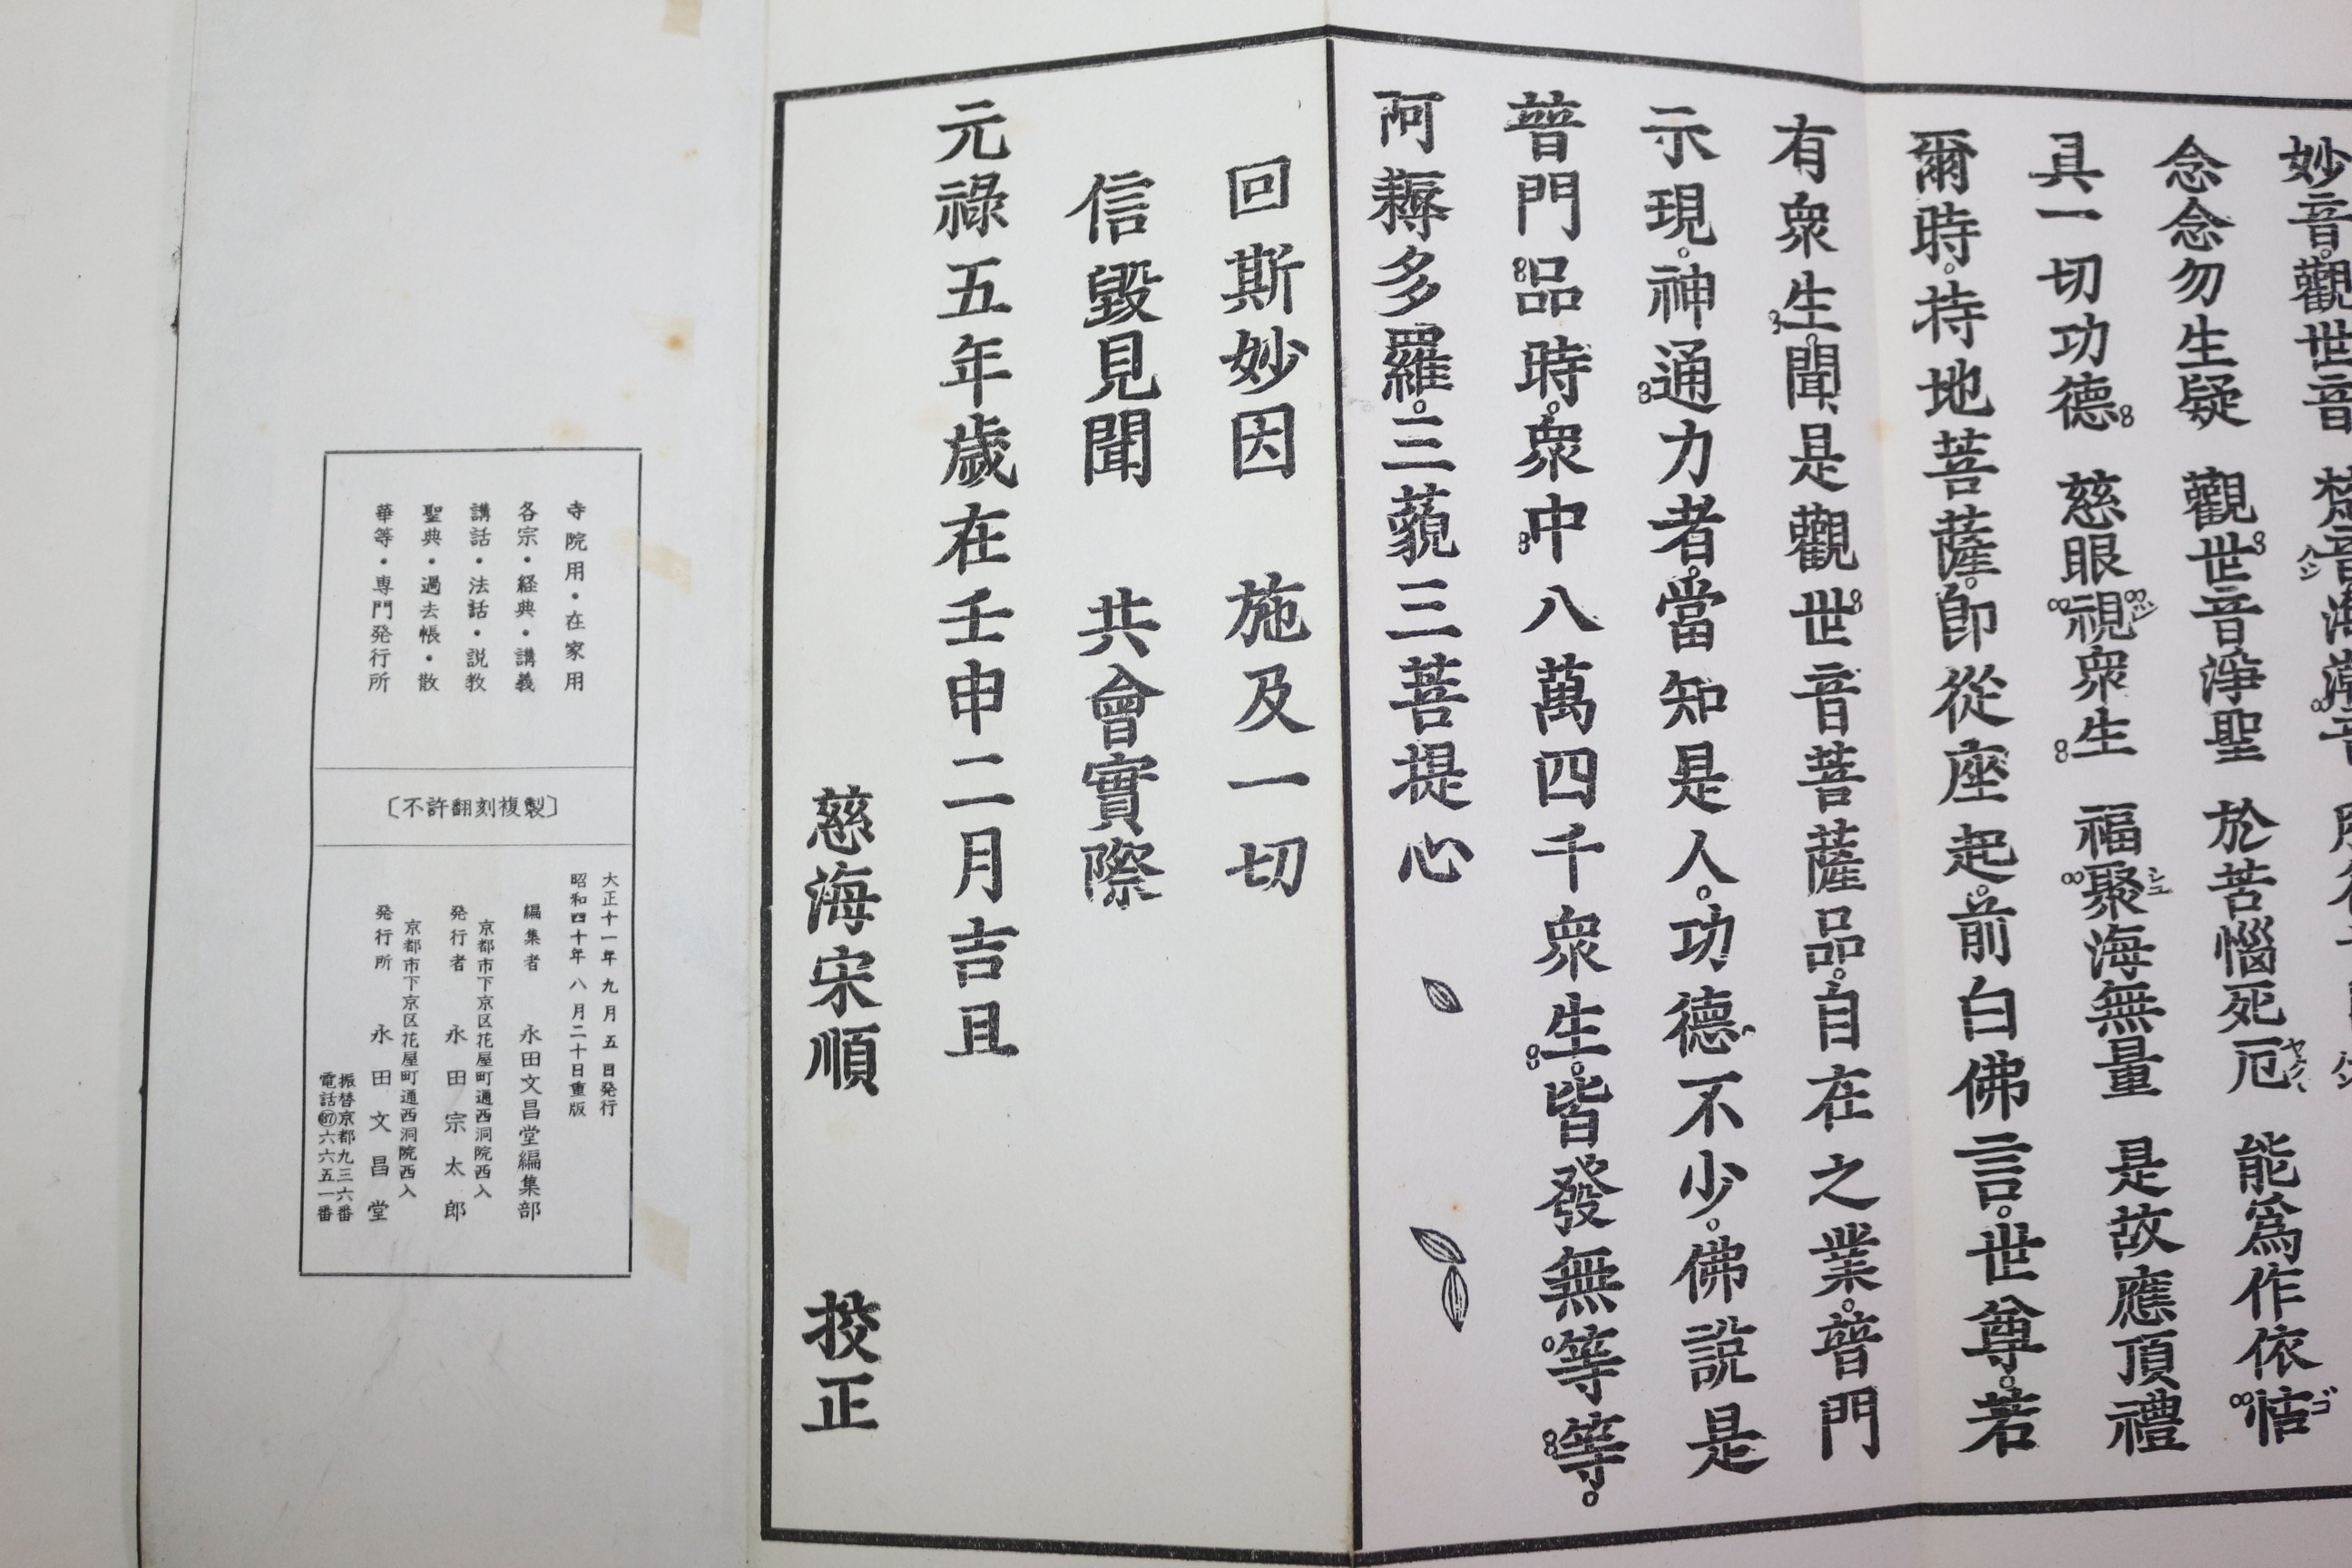 妙音。觀世音　梵音海潮音
念念勿生疑　觀世音淨聖　於苦惱死厄　能爲作依怙
具一切功德　慈眼視衆生　福聚海無量　是故應頂禮
爾時。持地菩薩。卽從座起。前白佛言。世尊。若
有衆生。聞是觀世音菩薩品。自在之業。普門
示現。神通力者。當知是人。功德不少。佛說是
普門品時。衆中八萬四千衆生。皆發無等等。
阿耨多羅。三藐三菩提心
回斯妙因　施及一切
信毀見聞　共會實際
元祿五年歲在壬申二月吉且
慈海宋順　挍正
寺院用・在家用
各宗・経典・講義
講話・法話・説教
聖典・過去帳・散
華等・専門発行所
〔不許翻刻複製〕
大正十一年九月五日発行
昭和四十年八月二十日重版
編集者　永田文昌堂編集部
京都市下京区花屋町通西洞院西入
発行者　永田宗太郎
京都市下京区花屋町通西洞院西入
発行所　永田文昌堂
振替京都九三六番
電話㊲六六五一番